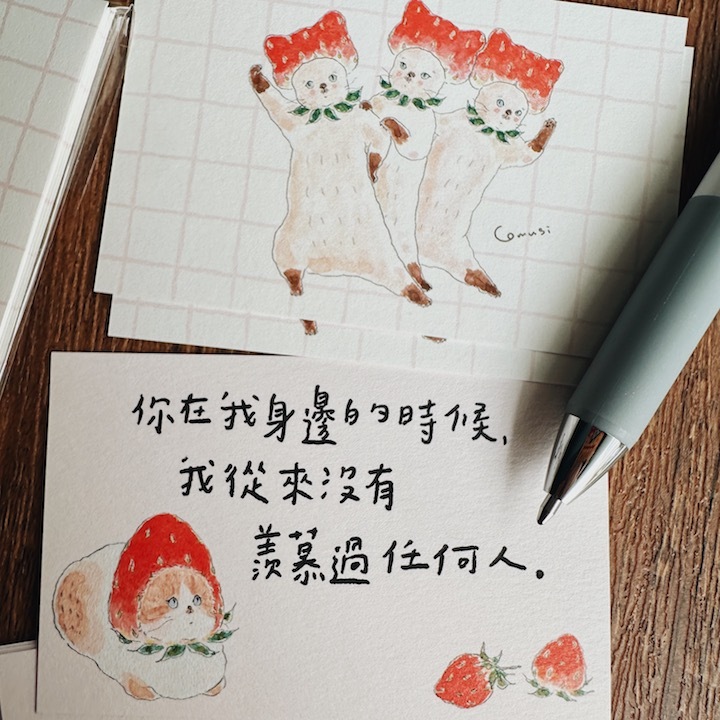 Comusi
你在我身邊的時候,
我從來沒有
羨慕過任何人。